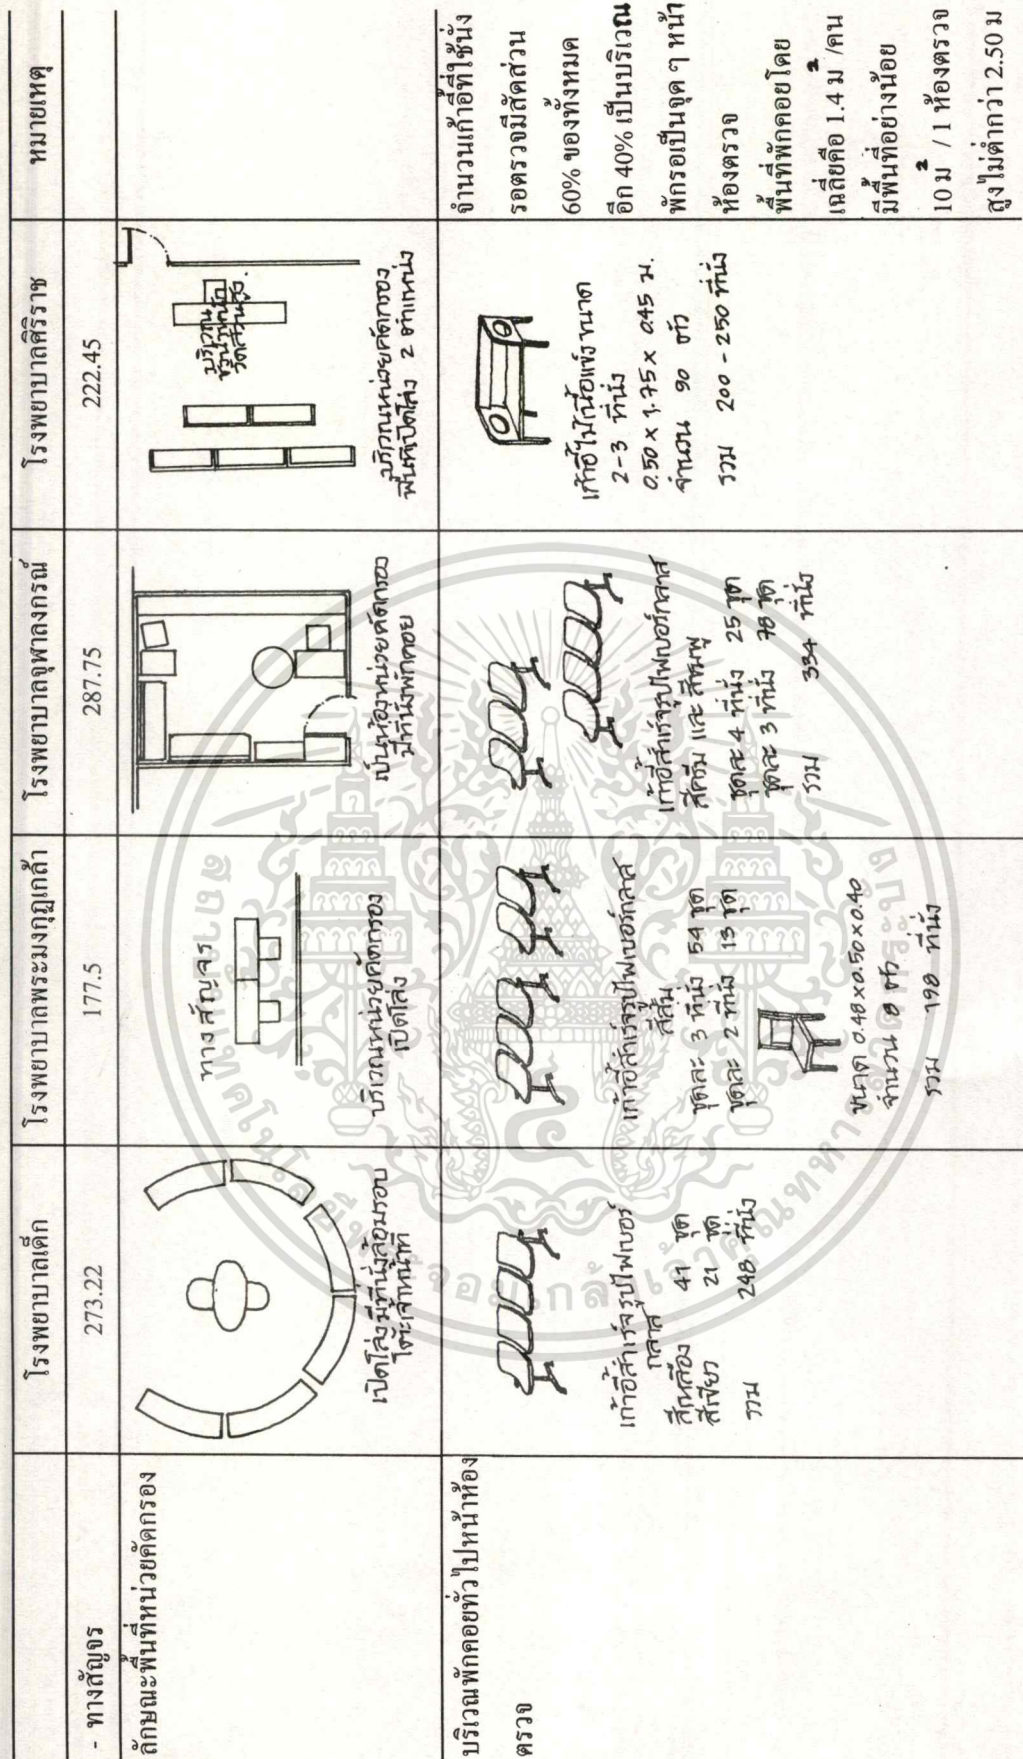 โรงพยาบาลเด็ก
โรงพยาบาลพระมงกุฎเกล้า
โรงพยาบาลจุฬาลงกรณ์
โรงพยาบาลศิริราช
หมายเหตุ
- ทางสัญจร
273.22
177.5
287.75
222.45
ลักษณะพื้นที่หน่วยคัดกรอง
เปิดโล่งมีที่นั่งล้อมรอบ
โต๊ะเจ้าหน้าที่
ทางสัญจร
บริเวณหน่วยคัดกรอง
เปิดโล่ง
เป็นห้องหน่วยคัดกรอง
มีที่นั่งพักคอย
บริเวณ
ชั่งน้ำหนัก
วัดส่วนสูง.
บริเวณหน่วยคัดกรอง
พื้นที่เปิดโล่ง 2 ตำแหน่ง
บริเวณพักคอยทั่วไปหน้าห้อง
ตรวจ
เก้าอี้สำเร็จรูปไฟเบอร์
กลาส
สีเหลือง 41 ชุด
สีเขียว 21 ชุด
รวม 248 ที่นั่ง
เก้าอี้สำเร็จรูปไฟเบอร์กลาส
สีส้ม
ชุดละ 3 ที่นั่ง 54 ชุด
ชุดละ 2 ที่นั่ง 13 ชุด
ขนาด 0.48x0.50x0.40
จำนวน 8 ตัว
รวม 198 ที่นั่ง
เก้าอี้สำเร็จรูปไฟเบอร์กลาส
สีครีม และ สีชมพู
ชุดละ 4 ที่นั่ง 25 ชุด
ชุดละ 3 ที่นั่ง 78 ชุด
รวม 334 ที่นั่ง
เก้าอี้ไม้เนื้อแข็งขนาด
2-3 ที่นั่ง
0.50 x 1.75 x 0.45 ม.
จำนวน 90 ตัว
รวม 200 - 250 ที่นั่ง
จำนวนเก้าอี้ที่ใช้นั่ง
รอตรวจมีสัดส่วน
60% ของทั้งหมด
อีก 40% เป็นบริเวณ
พักรอเป็นจุด ๆ หน้า
ห้องตรวจ
พื้นที่พักคอยโดย
เฉลี่ยคือ 1.4 ม²/คน
มีพื้นที่อย่างน้อย
10 ม² / 1 ห้องตรวจ
สูงไม่ต่ำกว่า 2.50 ม